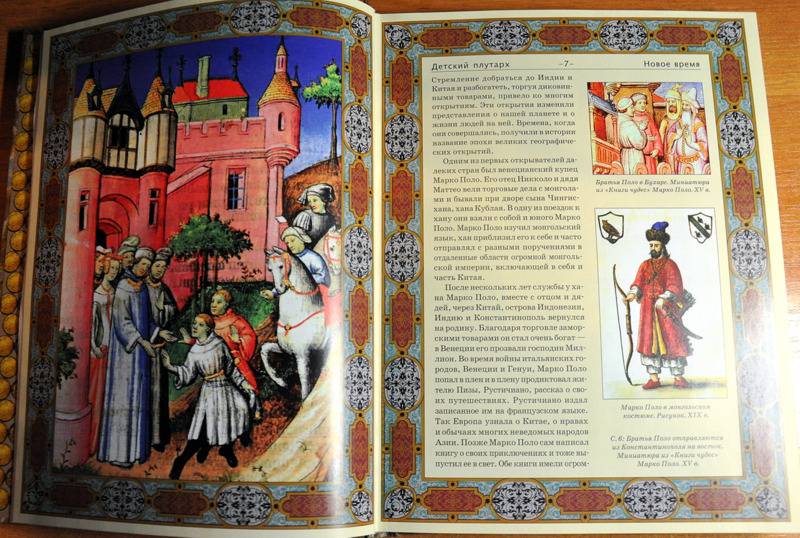 Детский плутарх –7– Новое время
Стремление добраться до Индии и
Китая и разбогатеть, торгуя диковин-
ными товарами, привело ко многим
открытиям. Эти открытия изменили
представления о нашей планете и о
жизни людей на ней. Времена, когда
они совершались, получили в истории
название эпохи великих географиче-
ских открытий.
Одним из первых открывателей да-
леких стран был венецианский купец
Марко Поло. Его отец Никколо и дядя
Маттео вели торговые дела с монгола-
ми и бывали при дворе сына Чингис-
хана, хана Кублая. В одну из поездок к
хану они взяли с собой и юного Марко
Поло. Марко Поло изучил монгольский
язык, хан приблизил его к себе и часто
отправлял с разными поручениями в
отдаленные области огромной монголь-
ской империи, включающей в себя и
часть Китая.
После нескольких лет службы у ха-
на Марко Поло, вместе с отцом и дя-
дей, через Китай, острова Индонезии,
Индию и Константинополь вернулся
на родину. Благодаря торговле замор-
скими товарами он стал очень богат —
в Венеции его прозвали господин Мил-
лион. Во время войны итальянских го-
родов, Венеции и Генуи, Марко Поло
попал в плен и в плену продиктовал жи-
телю Пизы, Рустичиано, рассказ о сво-
их путешествиях. Рустичиано издал
записанное им на французском языке.
Так Европа узнала о Китае, о нравах
и обычаях многих неведомых народов
Азии. Позже Марко Поло сам написал
книгу о своих приключениях и тоже вы-
пустил ее в свет. Обе книги имели огром-
Братья Поло в Бухаре. Миниатюра
из «Книги чудес» Марко Поло. XV в.
Марко Поло в монгольском
костюме. Рисунок. XIX в.
С. 6: Братья Поло отправляются
из Константинополя на восток.
Миниатюра из «Книги чудес»
Марко Поло. XV в.